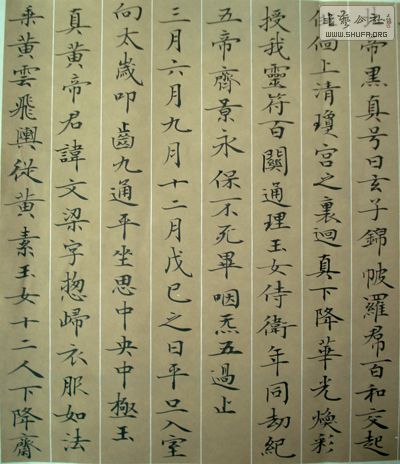 帝黑真号曰玄子錦帔羅帬百和交起
徊上清瓊宮之裏迴真下降華光煥彩
授我靈符百關通理玉女侍衛年同劫紀
五帝齊景永保不死畢咽炁五過止
三月六月九月十二月戊巳之日平旦入室
向太歲叩齒九通平坐思中央中極玉
真黃帝君諱文梁字惚歸衣服如法
乘黃雲飛輿從黃素玉女十二人下降齋
WWW.SHUFA.ORG